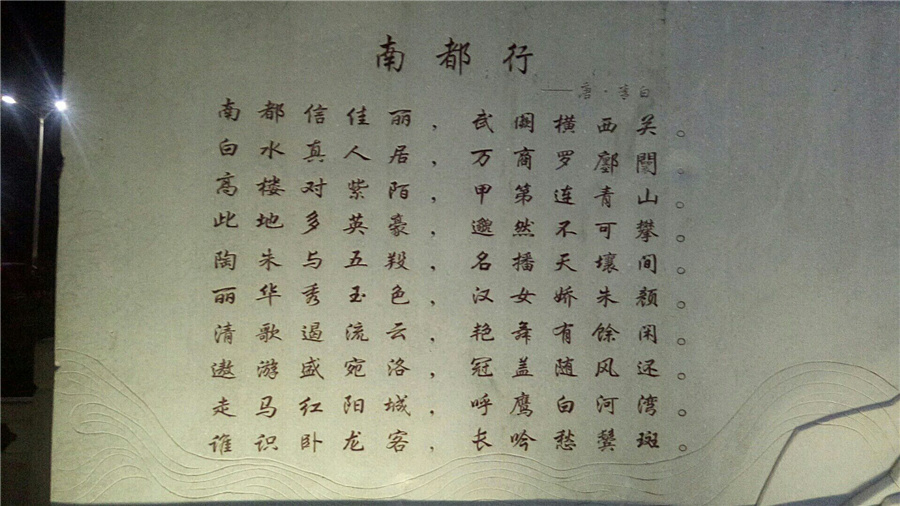 南都行
——唐·李白
南都信佳丽，武阙横西关。
白水真人居，万商罗鄽闤。
高楼对紫陌，甲第连青山。
此地多英豪，邈然不可攀。
陶朱与五羖，名播天壤间。
丽华秀玉色，汉女娇朱颜。
清歌遏流云，艳舞有馀闲。
遨游盛宛洛，冠盖随风还。
走马红阳城，呼鹰白河湾。
谁识卧龙客，长吟愁鬓斑。